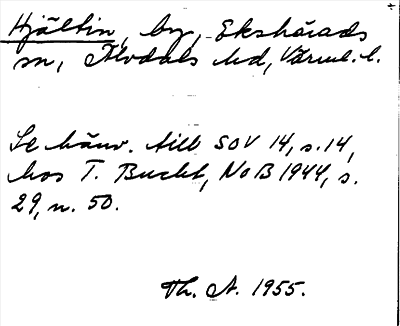 Hjältin, by, Ekshärads
sn, Älvdals hd, Värml. l.
Se hänv. till SOV 14, s. 14,
hos T. Bucht, NoB 1944, s.
29, n. 50.
Th. A. 1955.